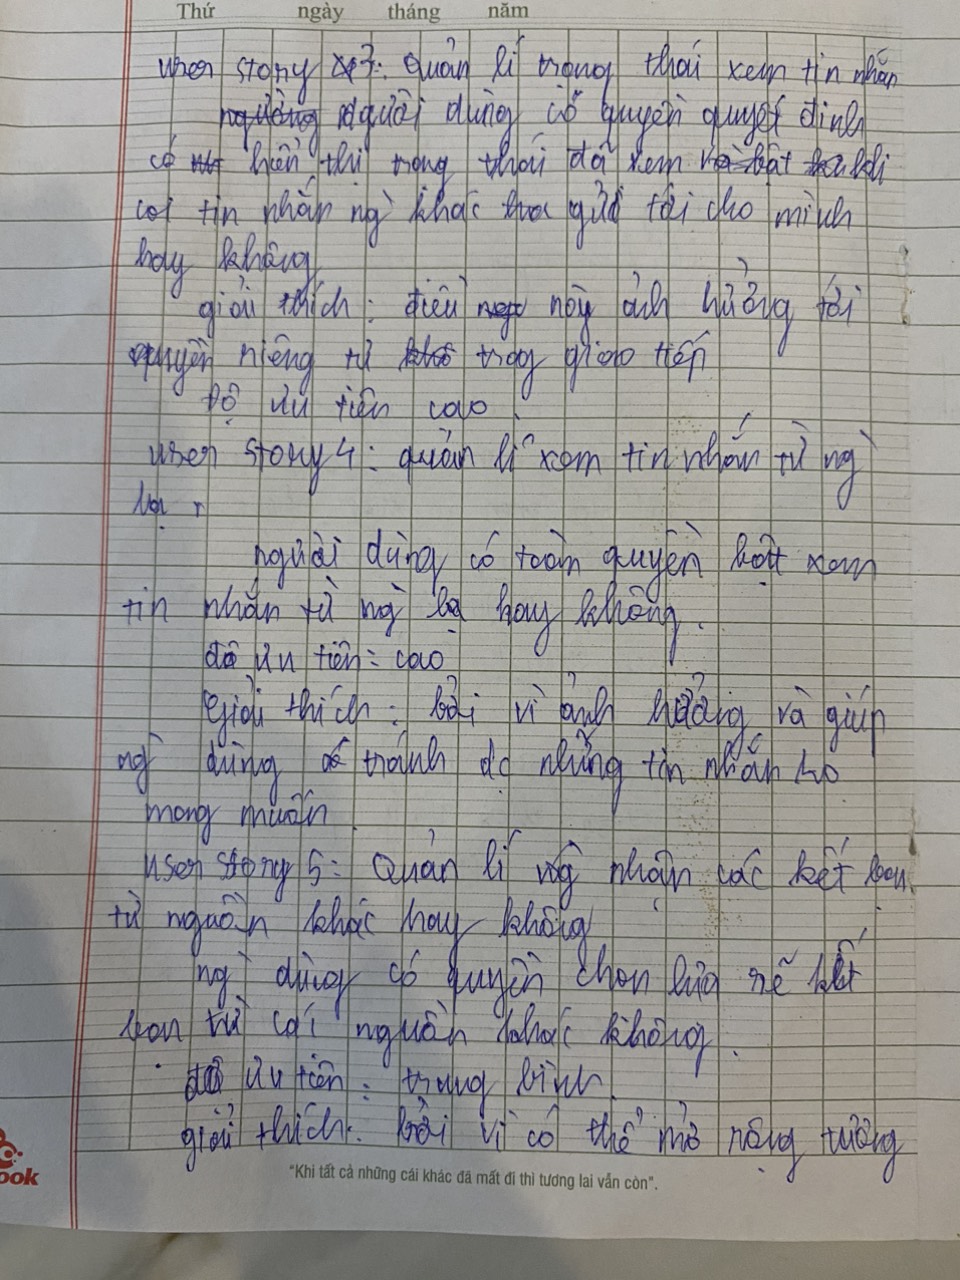 Thứ ngày tháng năm
user story 3: Quản lí trạng thái xem tin nhắn
người dùng có quyền quyết định
có hiển thị trạng thái đã xem khi
coi tin nhắn ng` khác gửi tới cho mình
hay không
giải thích: điều này ảnh hưởng tới
quyền riêng tư trog giao tiếp
Độ ưu tiên cao.
user story 4: quản lí xem tin nhắn từ ng`
lạ
người dùng có toàn quyền bật xem
tin nhắn từ ng` lạ hay không.
độ ưu tiên: cao
Giải thích: bởi vì ảnh hưởng và giúp
ng` dùng tránh dc những tin nhắn ko
mong muốn
user story 5: Quản lí nhận các kết bạn
từ nguồn khác hay không
ng` dùng có quyền chọn lựa sẽ kết
bạn từ cái nguồn khác không.
độ ưu tiên: trung bình
giải thích: bởi vì có thể mở rộng tường
"Khi tất cả những cái khác đã mất đi thì tương lai vẫn còn".
ook